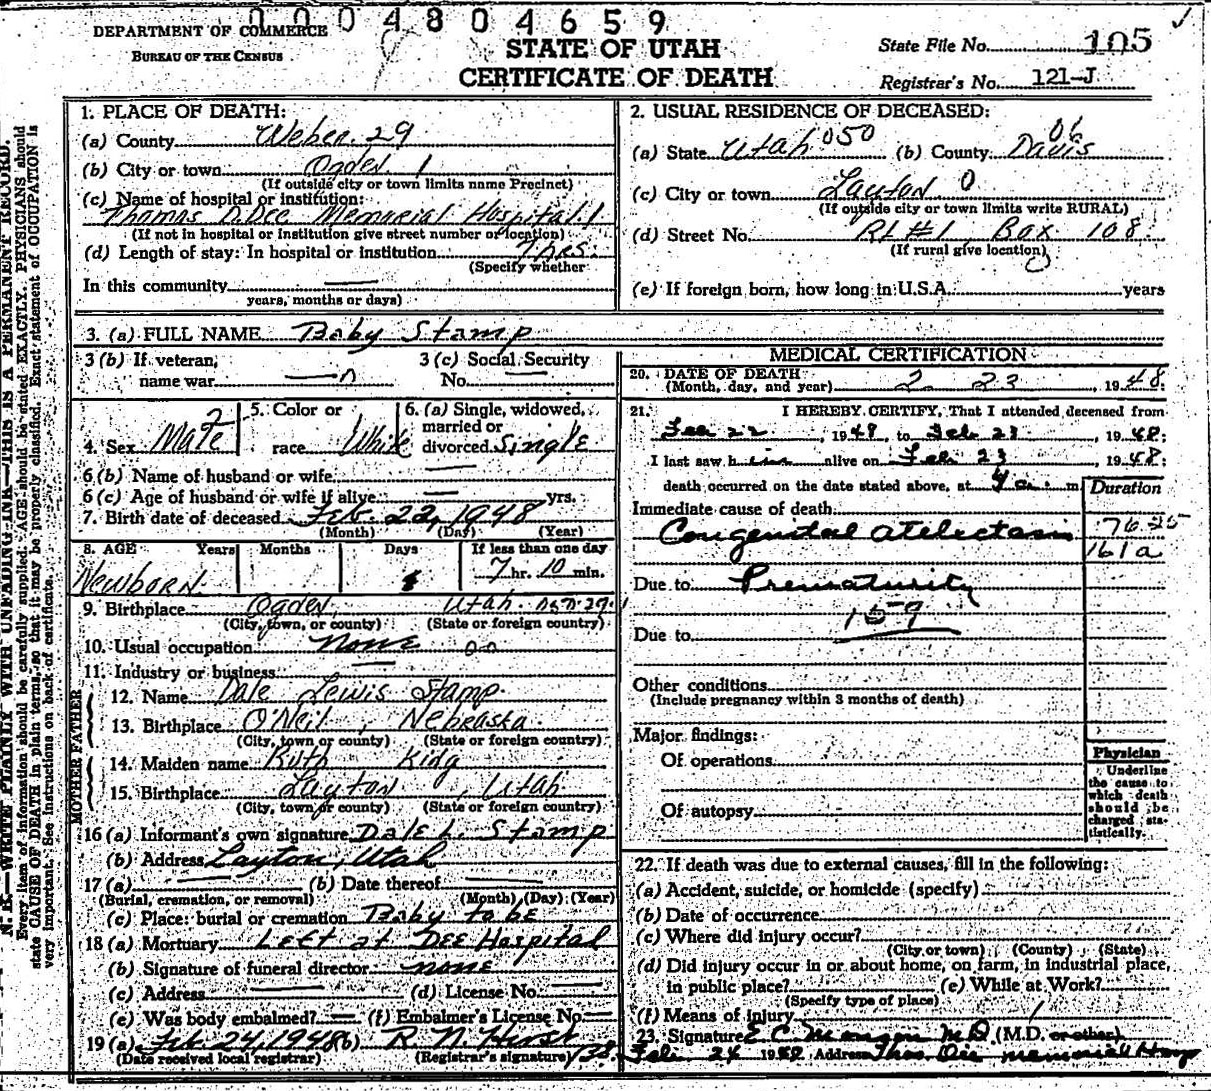 0004804659
DEPARTMENT OF COMMERCE
BUREAU OF THE CENSUS
STATE OF UTAH
CERTIFICATE OF DEATH
State File No. 105
Registrar's No. 121-J
N. B.—WRITE PLAINLY WITH UNFADING INK—THIS IS A PERMANENT RECORD.
Every item of information should be carefully supplied. AGE should be stated EXACTLY. PHYSICIANS should
state CAUSE OF DEATH in plain terms, so that it may be properly classified. Exact statement of OCCUPATION is
very important. See instructions on back of certificate.
1. PLACE OF DEATH:
(a) County Weber 29
(b) City or town Ogden 1
(If outside city or town limits name Precinct)
(c) Name of hospital or institution:
Thomas D. Dee Memorial Hospital 1
(If not in hospital or institution give street number or location)
(d) Length of stay: In hospital or institution 7 hrs.
(Specify whether
In this community —
years, months or days)
2. USUAL RESIDENCE OF DECEASED:
(a) State Utah 050 (b) County Davis 06
(c) City or town Layton 0
(If outside city or town limits write RURAL)
(d) Street No. Rt #1 Box 108
(If rural give location)
(e) If foreign born, how long in U.S.A. years
3. (a) FULL NAME Baby Stamp
3 (b) If veteran,
name war —
3 (c) Social Security
No. —
4. Sex Male 2
5. Color or
race White
6. (a) Single, widowed,
married or
divorced Single
6 (b) Name of husband or wife —
6 (c) Age of husband or wife if alive — yrs.
7. Birth date of deceased Feb. 22, 1948
(Month) (Day) (Year)
8. AGE Years Months Days If less than one day
Newborn 7 hr. 10 min.
9. Birthplace Ogden, Utah 29
(City, town, or county) (State or foreign country)
10. Usual occupation None 00
11. Industry or business —
FATHER
12. Name Dale Lewis Stamp
13. Birthplace O'Neil, Nebraska
(City, town or county) (State or foreign country)
MOTHER
14. Maiden name Ruth King
15. Birthplace Layton, Utah
(City, town or county) (State or foreign country)
16 (a) Informant's own signature Dale L. Stamp
(b) Address Layton, Utah
17 (a) — (b) Date thereof —
(Burial, cremation, or removal) (Month) (Day) (Year)
(c) Place: burial or cremation Baby to be
18 (a) Mortuary Left at Dee Hospital
(b) Signature of funeral director none
(c) Address — (d) License No. —
(e) Was body embalmed? — (f) Embalmer's License No. —
19 (a) Feb. 24, 1948 (b) R. N. Hirst
(Date received local registrar) (Registrar's signature)
MEDICAL CERTIFICATION
20. DATE OF DEATH
(Month, day, and year) 2 23, 1948:
21. I HEREBY CERTIFY, That I attended deceased from
Feb 22, 1948, to Feb. 23, 1948;
I last saw him alive on Feb 23, 1948;
death occurred on the date stated above, at 4 a. m.
Duration
Immediate cause of death
Congenital atelectasis
161a
Due to Prematurity
159
Due to
Other conditions
(Include pregnancy within 3 months of death)
Major findings:
Of operations
Of autopsy
Physician
Underline
the cause to
which death
should be
charged sta-
tistically.
22. If death was due to external causes, fill in the following:
(a) Accident, suicide, or homicide (specify)
(b) Date of occurrence
(c) Where did injury occur?
(City or town) (County) (State)
(d) Did injury occur in or about home, on farm, in industrial place,
in public place? (e) While at Work?
(Specify type of place)
(f) Means of injury
23. Signature E. C. M.D. (M.D. or other)
Feb. 24 1948 Address Thos. Dee memorial Hosp